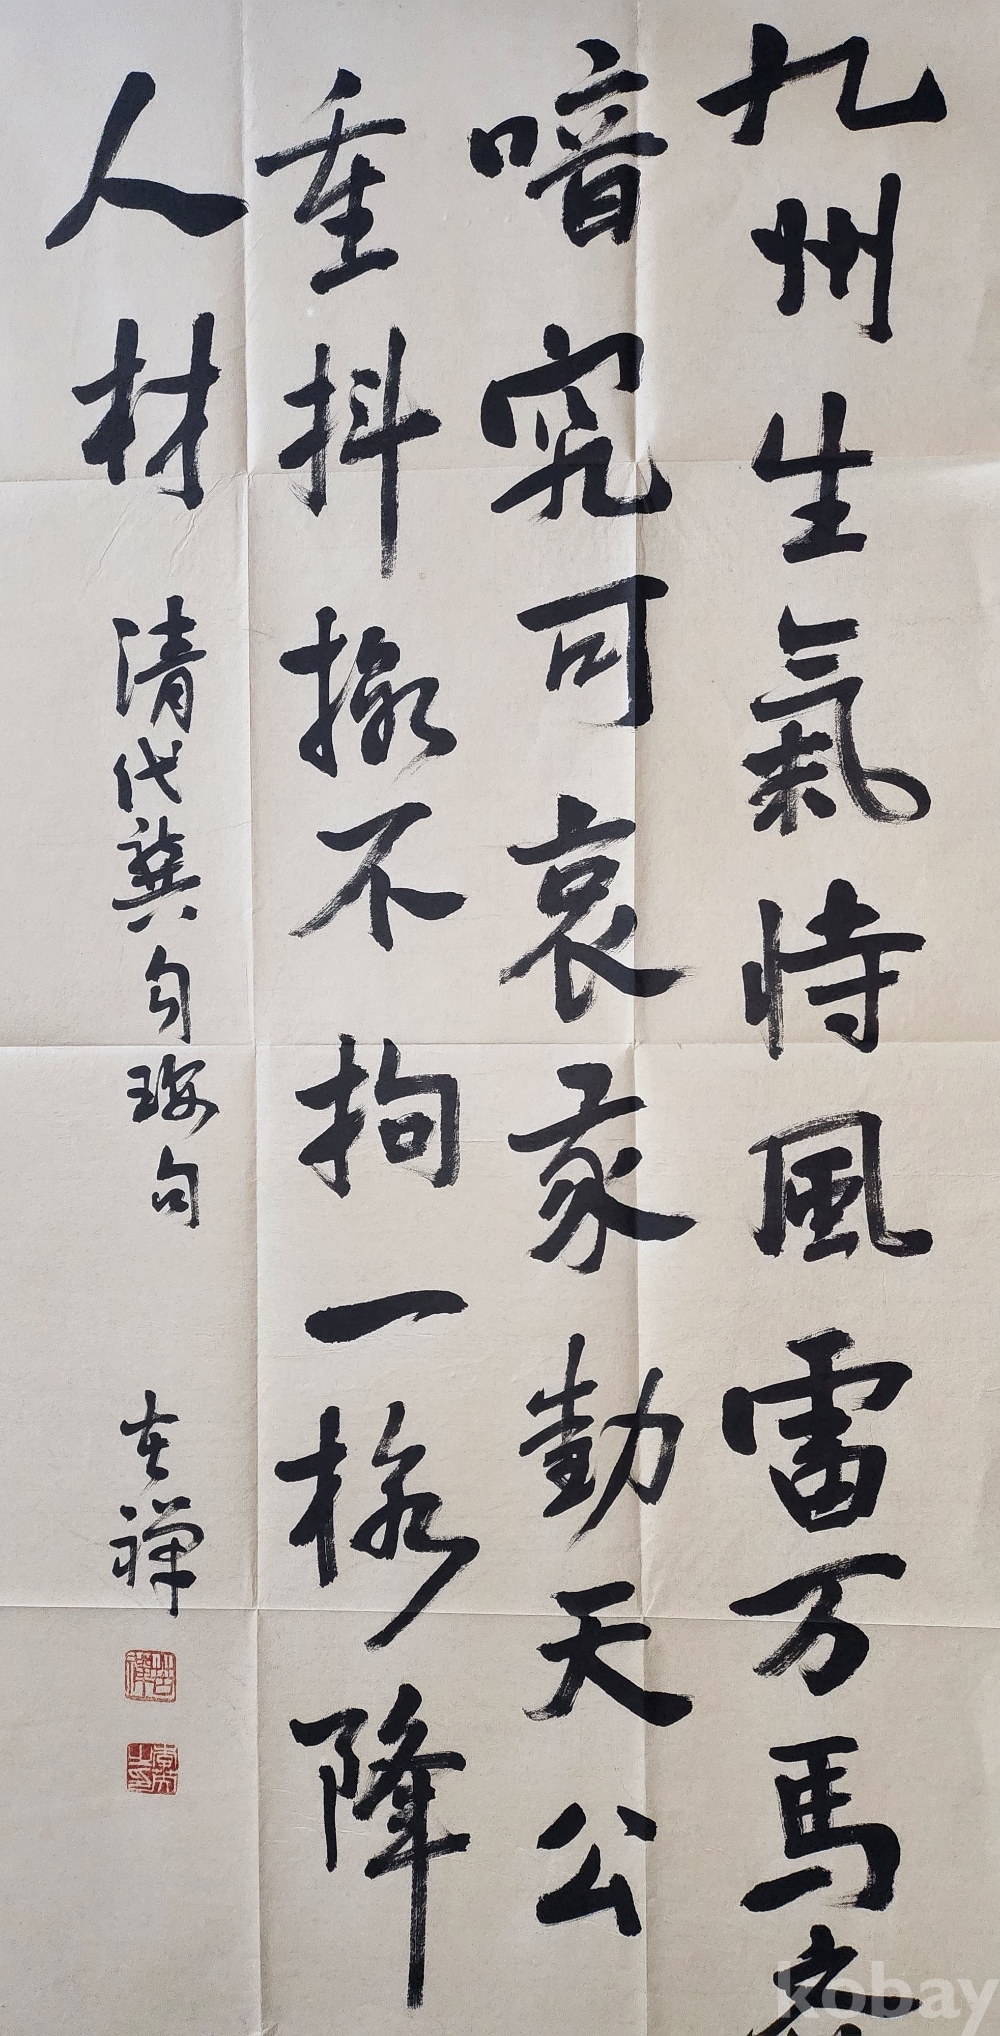 九州生氣恃風雷万馬齐
喑究可哀我勸天公
重抖擞不拘一格降
人材 清代龔自珍句 禅
kobay